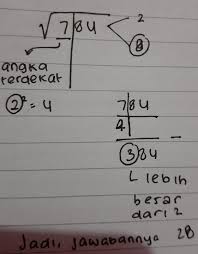 √7|84 < 2
8
angka
terdekat
2² = 4
7|84
4| -
384
lebih
besar
dari 2
Jadi, jawabannya 28